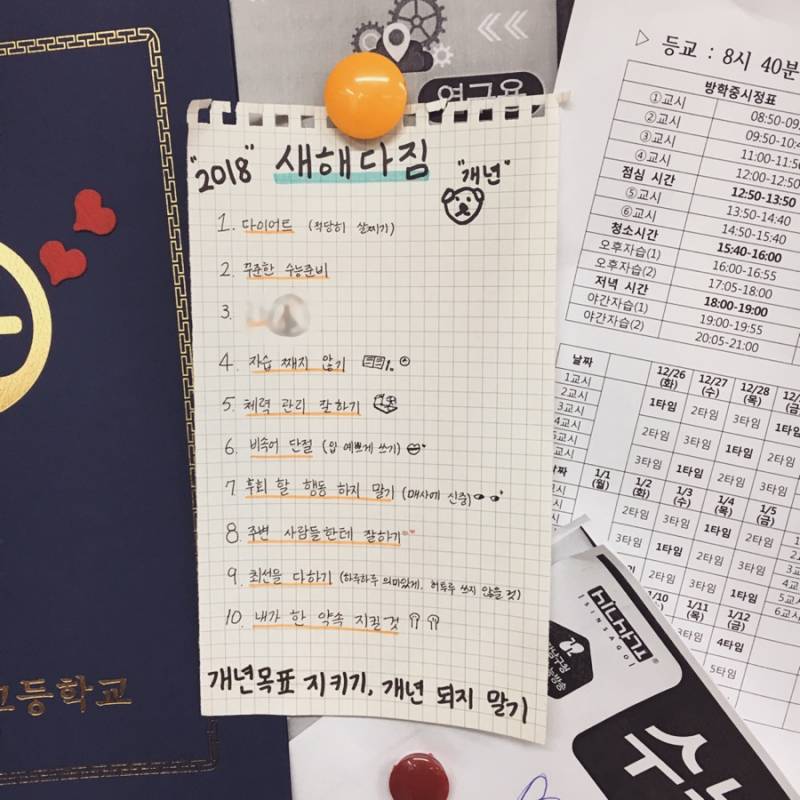 "2018" 새해다짐 "개년"
1. 다이어트 (적당히 살찌기)
2. 꾸준한 수능준비
3.
4. 자습 째지 않기
5. 체력 관리 잘하기
6. 비속어 단절 (입 예쁘게 쓰기)
7. 후회 할 행동 하지 말기 (매사에 신중)
8. 주변 사람들한테 잘하기
9. 최선을 다하기 (하루하루 의미있게, 허투루 쓰지 않을 것)
10. 내가 한 약속 지킬 것
개년목표 지키기, 개년 되지 말기
연구용
고등학교
▷ 등교 : 8시 40분
방학중시정표
①교시 08:50-09
②교시 09:50-10:4
③교시 11:00-11:5
④교시 12:00-12:50
점심 시간 12:50-13:50
⑤교시 13:50-14:40
⑥교시 14:50-15:40
청소시간 15:40-16:00
오후자습(1) 16:00-16:55
오후자습(2) 17:05-18:00
저녁 시간 18:00-19:00
야간자습(1) 19:00-19:55
야간자습(2) 20:05-21:00
날짜 12/26 (화) 12/27 (수) 12/28 (목)
1교시 1타임 2타임 3타임 1타임
2교시
3교시 2타임 3타임 1타임 2타임
4교시
5교시 3타임 1타임 2타임 3타임
6교시
날짜 1/1 (월) 1/2 (화) 1/3 (수) 1/4 (목) 1/5 (금)
2타임 3타임 1타임 2타임
3타임 1타임 2타임 3타임
1타임 2타임 3타임 1타임
1/10 1/11 (목) 1/12 (금)
3타임 4타임
5타임
6교시
시대사고
강남구청
수능